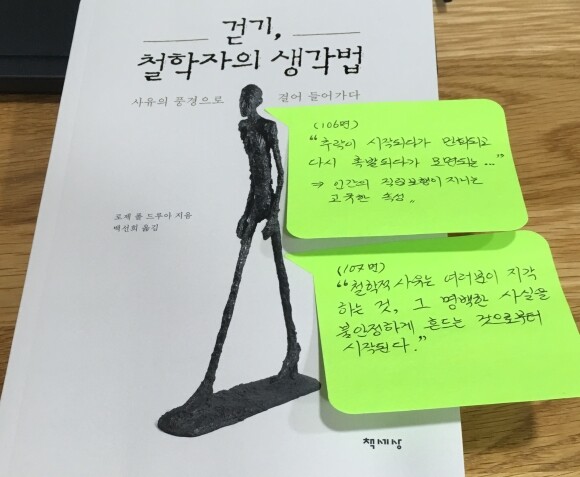 걷기,
철학자의 생각법
사유의 풍경으로 걸어 들어가다
로제 폴 드루아 지음
백선희 옮김
책세상
(106면)
"추락이 시작되다가 만회되고
다시 촉발되다가 모면되는 ..."
⇒ 인간의 직립보행이 지니는
고유한 속성 〃
(107면)
"철학적 사유는 여러분이 지각
하는 것, 그 명백한 사실을
불안정하게 흔드는 것으로부터
시작된다."